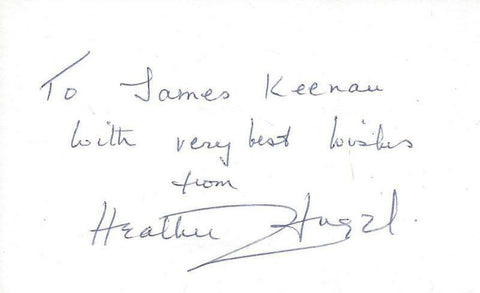 To James Keenan
with very best wishes
from
Heather Angel.